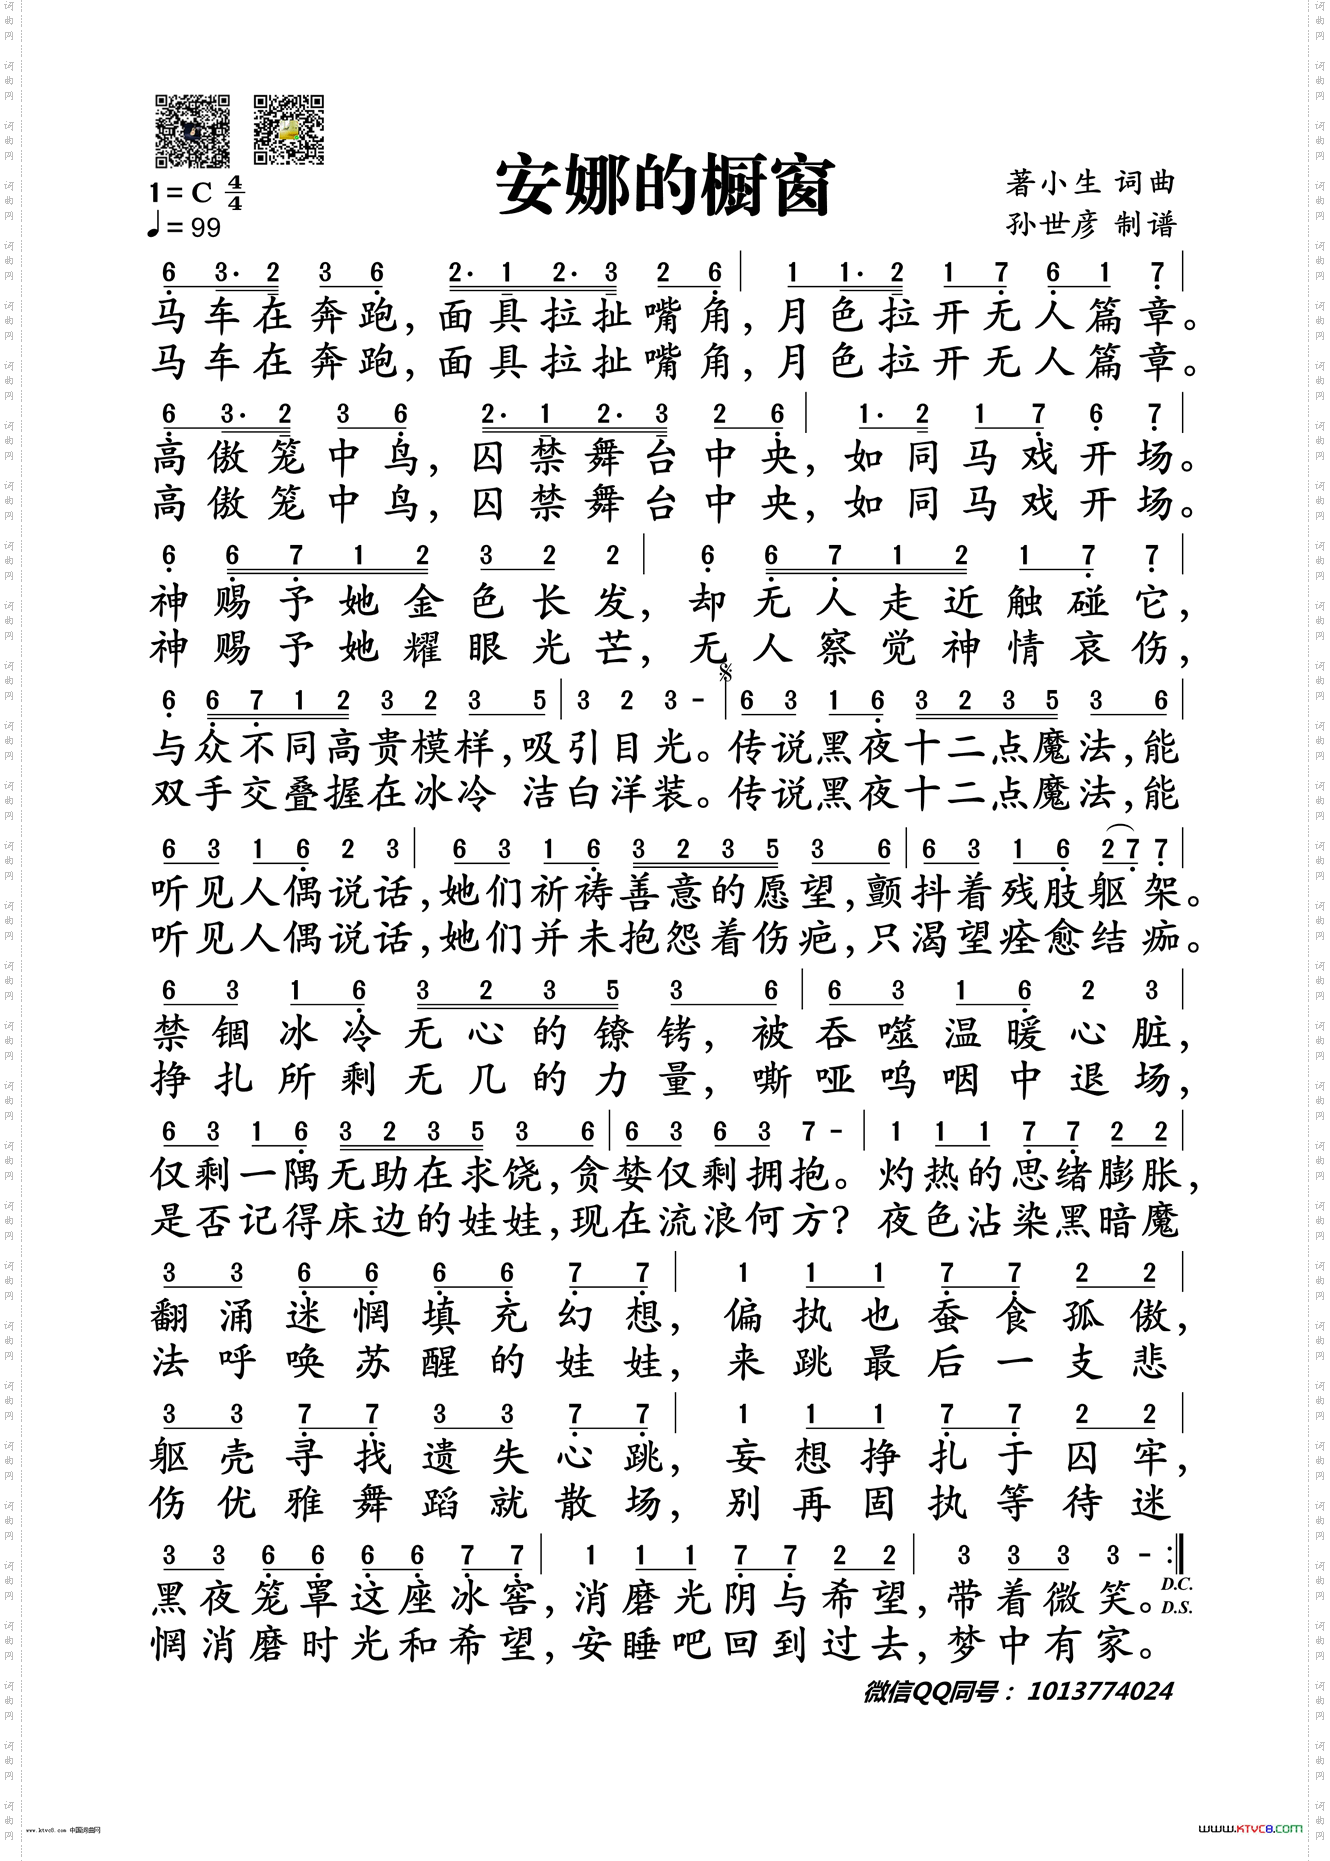 安娜的橱窗
1=C 4/4
♩=99
著小生 词曲
孙世彦 制谱
6 3· 2 3 6 2· 1 2· 3 2 6 | 1 1· 2 1 7 6 1 7 |
马车在奔跑，面具拉扯嘴角，月色拉开无人篇章。
马车在奔跑，面具拉扯嘴角，月色拉开无人篇章。
6 3· 2 3 6 2· 1 2· 3 2 6 | 1· 2 1 7 6 7 |
高傲笼中鸟，囚禁舞台中央，如同马戏开场。
高傲笼中鸟，囚禁舞台中央，如同马戏开场。
6 6 7 1 2 3 2 2 | 6 6 7 1 2 1 7 7 |
神赐予她金色长发，却无人走近触碰它，
神赐予她耀眼光芒，无人察觉神情哀伤，
6 6 7 1 2 3 2 3 5 | 3 2 3 - | 6 3 1 6 3 2 3 5 3 6 |
与众不同高贵模样，吸引目光。传说黑夜十二点魔法，能
双手交叠握在冰冷 洁白洋装。传说黑夜十二点魔法，能
6 3 1 6 2 3 | 6 3 1 6 3 2 3 5 3 6 | 6 3 1 6 2 7 7 |
听见人偶说话，她们祈祷善意的愿望，颤抖着残肢躯架。
听见人偶说话，她们并未抱怨着伤疤，只渴望痊愈结痂。
6 3 1 6 3 2 3 5 3 6 | 6 3 1 6 2 3 |
禁锢冰冷无心的镣铐，被吞噬温暖心脏，
挣扎所剩无几的力量，嘶哑呜咽中退场，
6 3 1 6 3 2 3 5 3 6 | 6 3 6 3 7 - | 1 1 1 7 7 2 2 |
仅剩一隅无助在求饶，贪婪仅剩拥抱。灼热的思绪膨胀，
是否记得床边的娃娃，现在流浪何方？夜色沾染黑暗魔
3 3 6 6 6 6 7 7 | 1 1 1 7 7 2 2 |
翻涌迷惘填充幻想，偏执也蚕食孤傲，
法呼唤苏醒的娃娃，来跳最后一支悲
3 3 7 7 3 3 7 7 | 1 1 1 7 7 2 2 |
躯壳寻找遗失心跳，妄想挣扎于囚牢，
伤优雅舞蹈就散场，别再固执等待迷
3 3 6 6 6 6 7 7 | 1 1 1 7 7 2 2 | 3 3 3 3 - :|
黑夜笼罩这座冰窖，消磨光阴与希望，带着微笑。D.C.
D.S.
惘消磨时光和希望，安睡吧回到过去，梦中有家。
微信QQ同号：1013774024
www.ktvc8.com 中国词曲网
WWW.KTVC8.COM